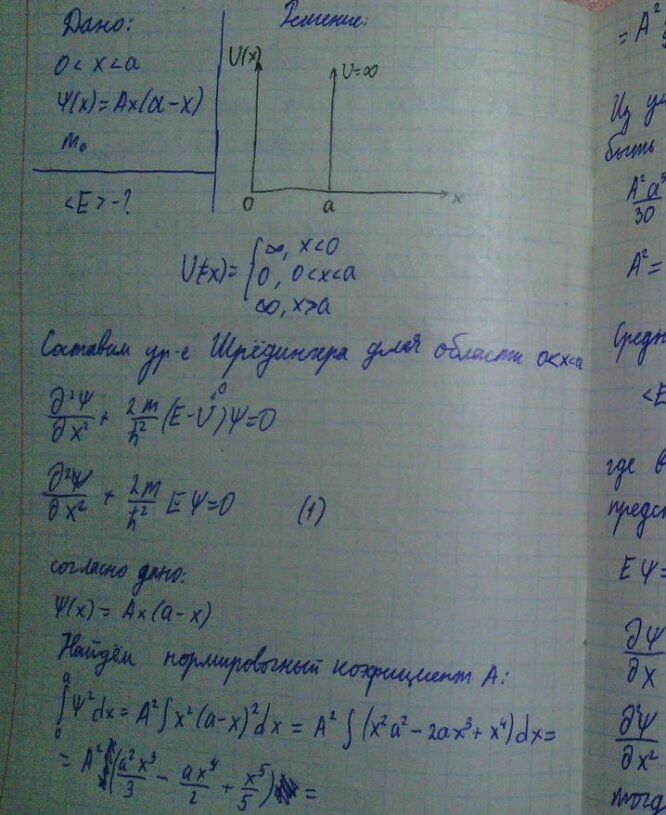 Дано:
0 < x < a
Ψ(x) = Ax(a-x)
m₀
<E> - ?
Решение:
U(x)
U=∞
0
a
x
U(x) = { ∞, x<0
0, 0<x<a
∞, x>a
Составим ур-е Шрёдингера для области 0<x<a
∂²Ψ/∂x² + 2m/ħ² (E-U)Ψ=0
0
∂²Ψ/∂x² + 2m/ħ² EΨ=0 (1)
согласно дано:
Ψ(x) = Ax(a-x)
Найдём нормировочный коэфициент A:
∫₀ᵃ Ψ²dx = A² ∫ x²(a-x)²dx = A² ∫ (x²a² - 2ax³ + x⁴)dx =
= A² (a²x³/3 - ax⁴/2 + x⁵/5) =
= A²
Из
быть
A²a⁵/30
A² =
<E
где
EΨ=
∂Ψ/∂x
∂²Ψ/∂x²